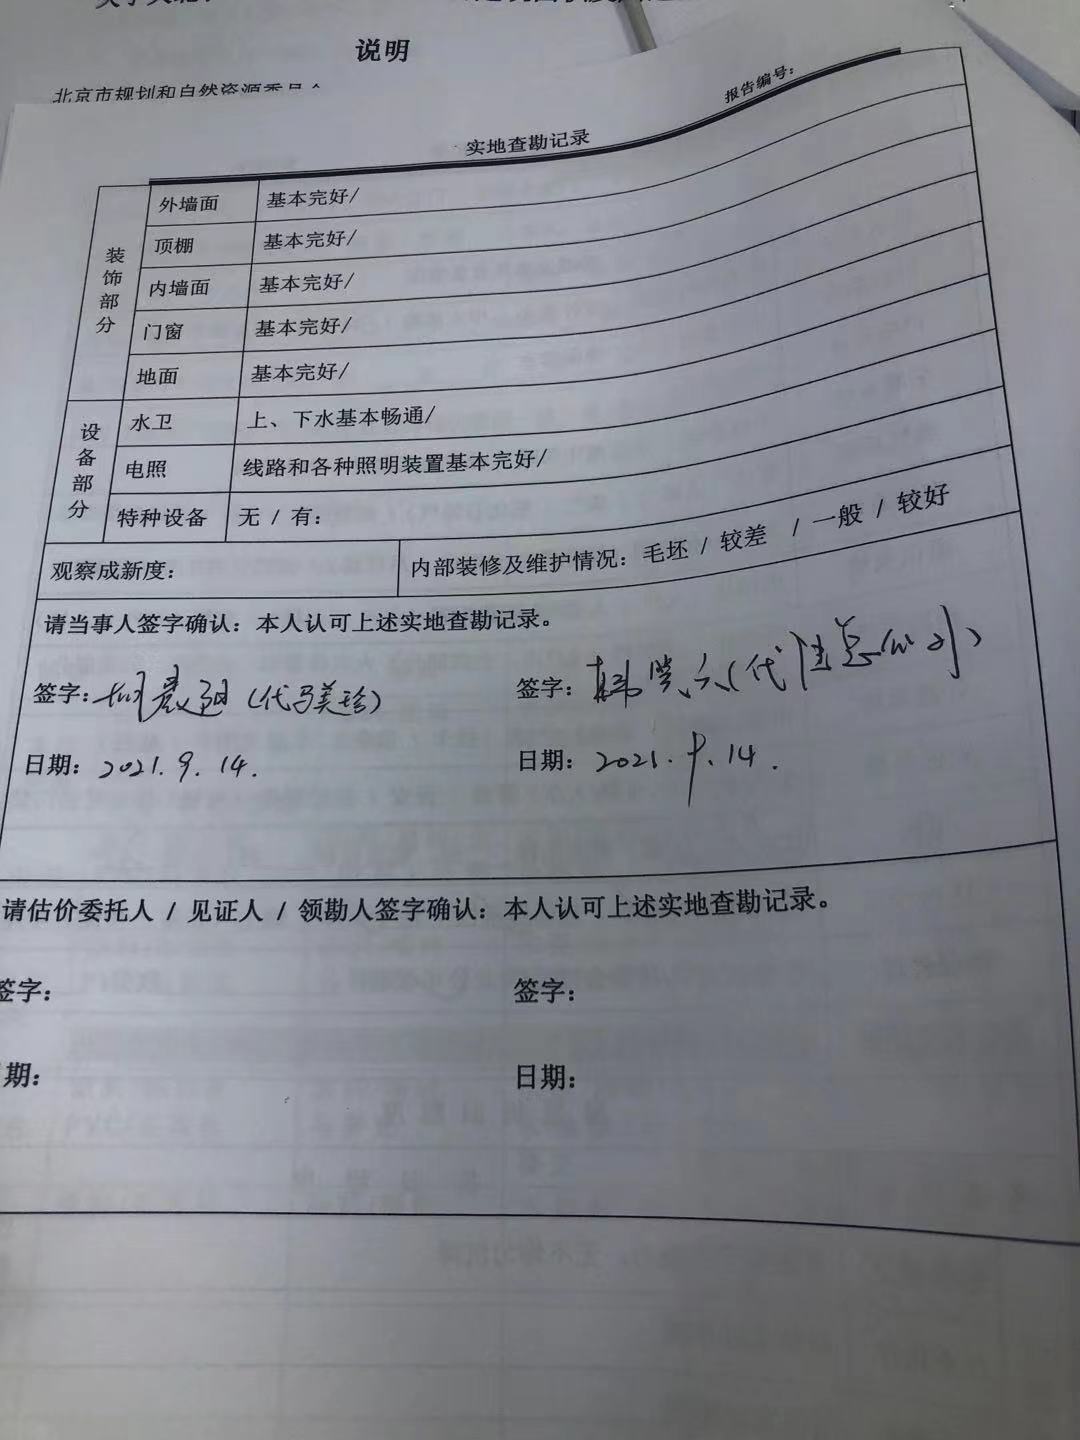 说明
北京市规划和自然资源委员
报告编号：
实地查勘记录
装饰部分
外墙面 基本完好/
顶棚 基本完好/
内墙面 基本完好/
门窗 基本完好/
地面 基本完好/
设备部分
水卫 上、下水基本畅通/
电照 线路和各种照明装置基本完好/
特种设备 无 / 有：
观察成新度： 内部装修及维护情况：毛坯 / 较差 / 一般 / 较好
请当事人签字确认：本人认可上述实地查勘记录。
签字： (代马美珍) 签字： (代
日期：2021.9.14. 日期：2021.9.14.
请估价委托人 / 见证人 / 领勘人签字确认：本人认可上述实地查勘记录。
签字： 签字：
期： 日期：